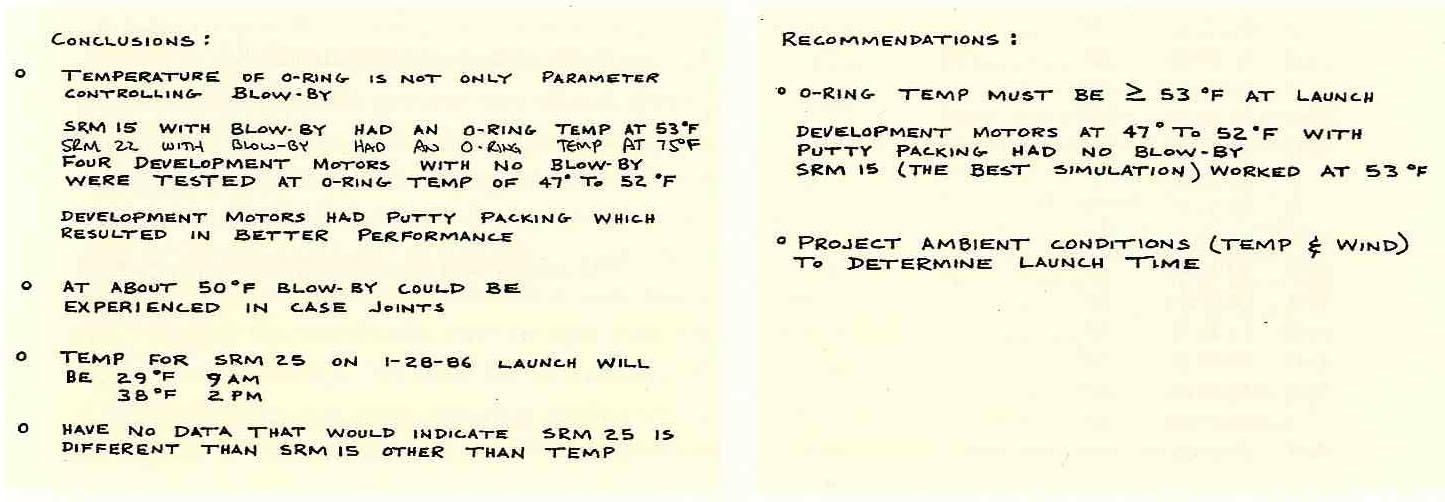 CONCLUSIONS :
o TEMPERATURE OF O-RING IS NOT ONLY PARAMETER
CONTROLLING BLOW-BY
SRM 15 WITH BLOW-BY HAD AN O-RING TEMP AT 53°F
SRM 22 WITH BLOW-BY HAD AN O-RING TEMP AT 75°F
FOUR DEVELOPMENT MOTORS WITH NO BLOW-BY
WERE TESTED AT O-RING TEMP OF 47° TO 52°F
DEVELOPMENT MOTORS HAD PUTTY PACKING WHICH
RESULTED IN BETTER PERFORMANCE
o AT ABOUT 50°F BLOW-BY COULD BE
EXPERIENCED IN CASE JOINTS
o TEMP FOR SRM 25 ON 1-28-86 LAUNCH WILL
BE 29°F 9 AM
38°F 2 PM
o HAVE NO DATA THAT WOULD INDICATE SRM 25 IS
DIFFERENT THAN SRM 15 OTHER THAN TEMP
RECOMMENDATIONS :
o O-RING TEMP MUST BE ≥ 53°F AT LAUNCH
DEVELOPMENT MOTORS AT 47° TO 52°F WITH
PUTTY PACKING HAD NO BLOW-BY
SRM 15 (THE BEST SIMULATION) WORKED AT 53°F
o PROJECT AMBIENT CONDITIONS (TEMP & WIND)
TO DETERMINE LAUNCH TIME